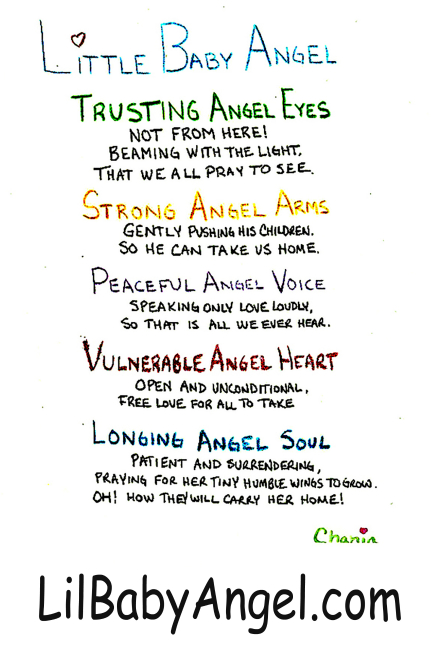 Little Baby Angel
Trusting Angel Eyes
Not from here!
Beaming with the light,
That we all pray to see.
Strong Angel Arms
Gently pushing His children.
So He can take us home.
Peaceful Angel Voice
Speaking only love loudly,
So that is all we ever hear.
Vulnerable Angel Heart
Open and unconditional,
Free love for all to take
Longing Angel Soul
Patient and surrendering,
Praying for her tiny humble wings to grow.
Oh! How they will carry her home!
Chania
LilBabyAngel.com